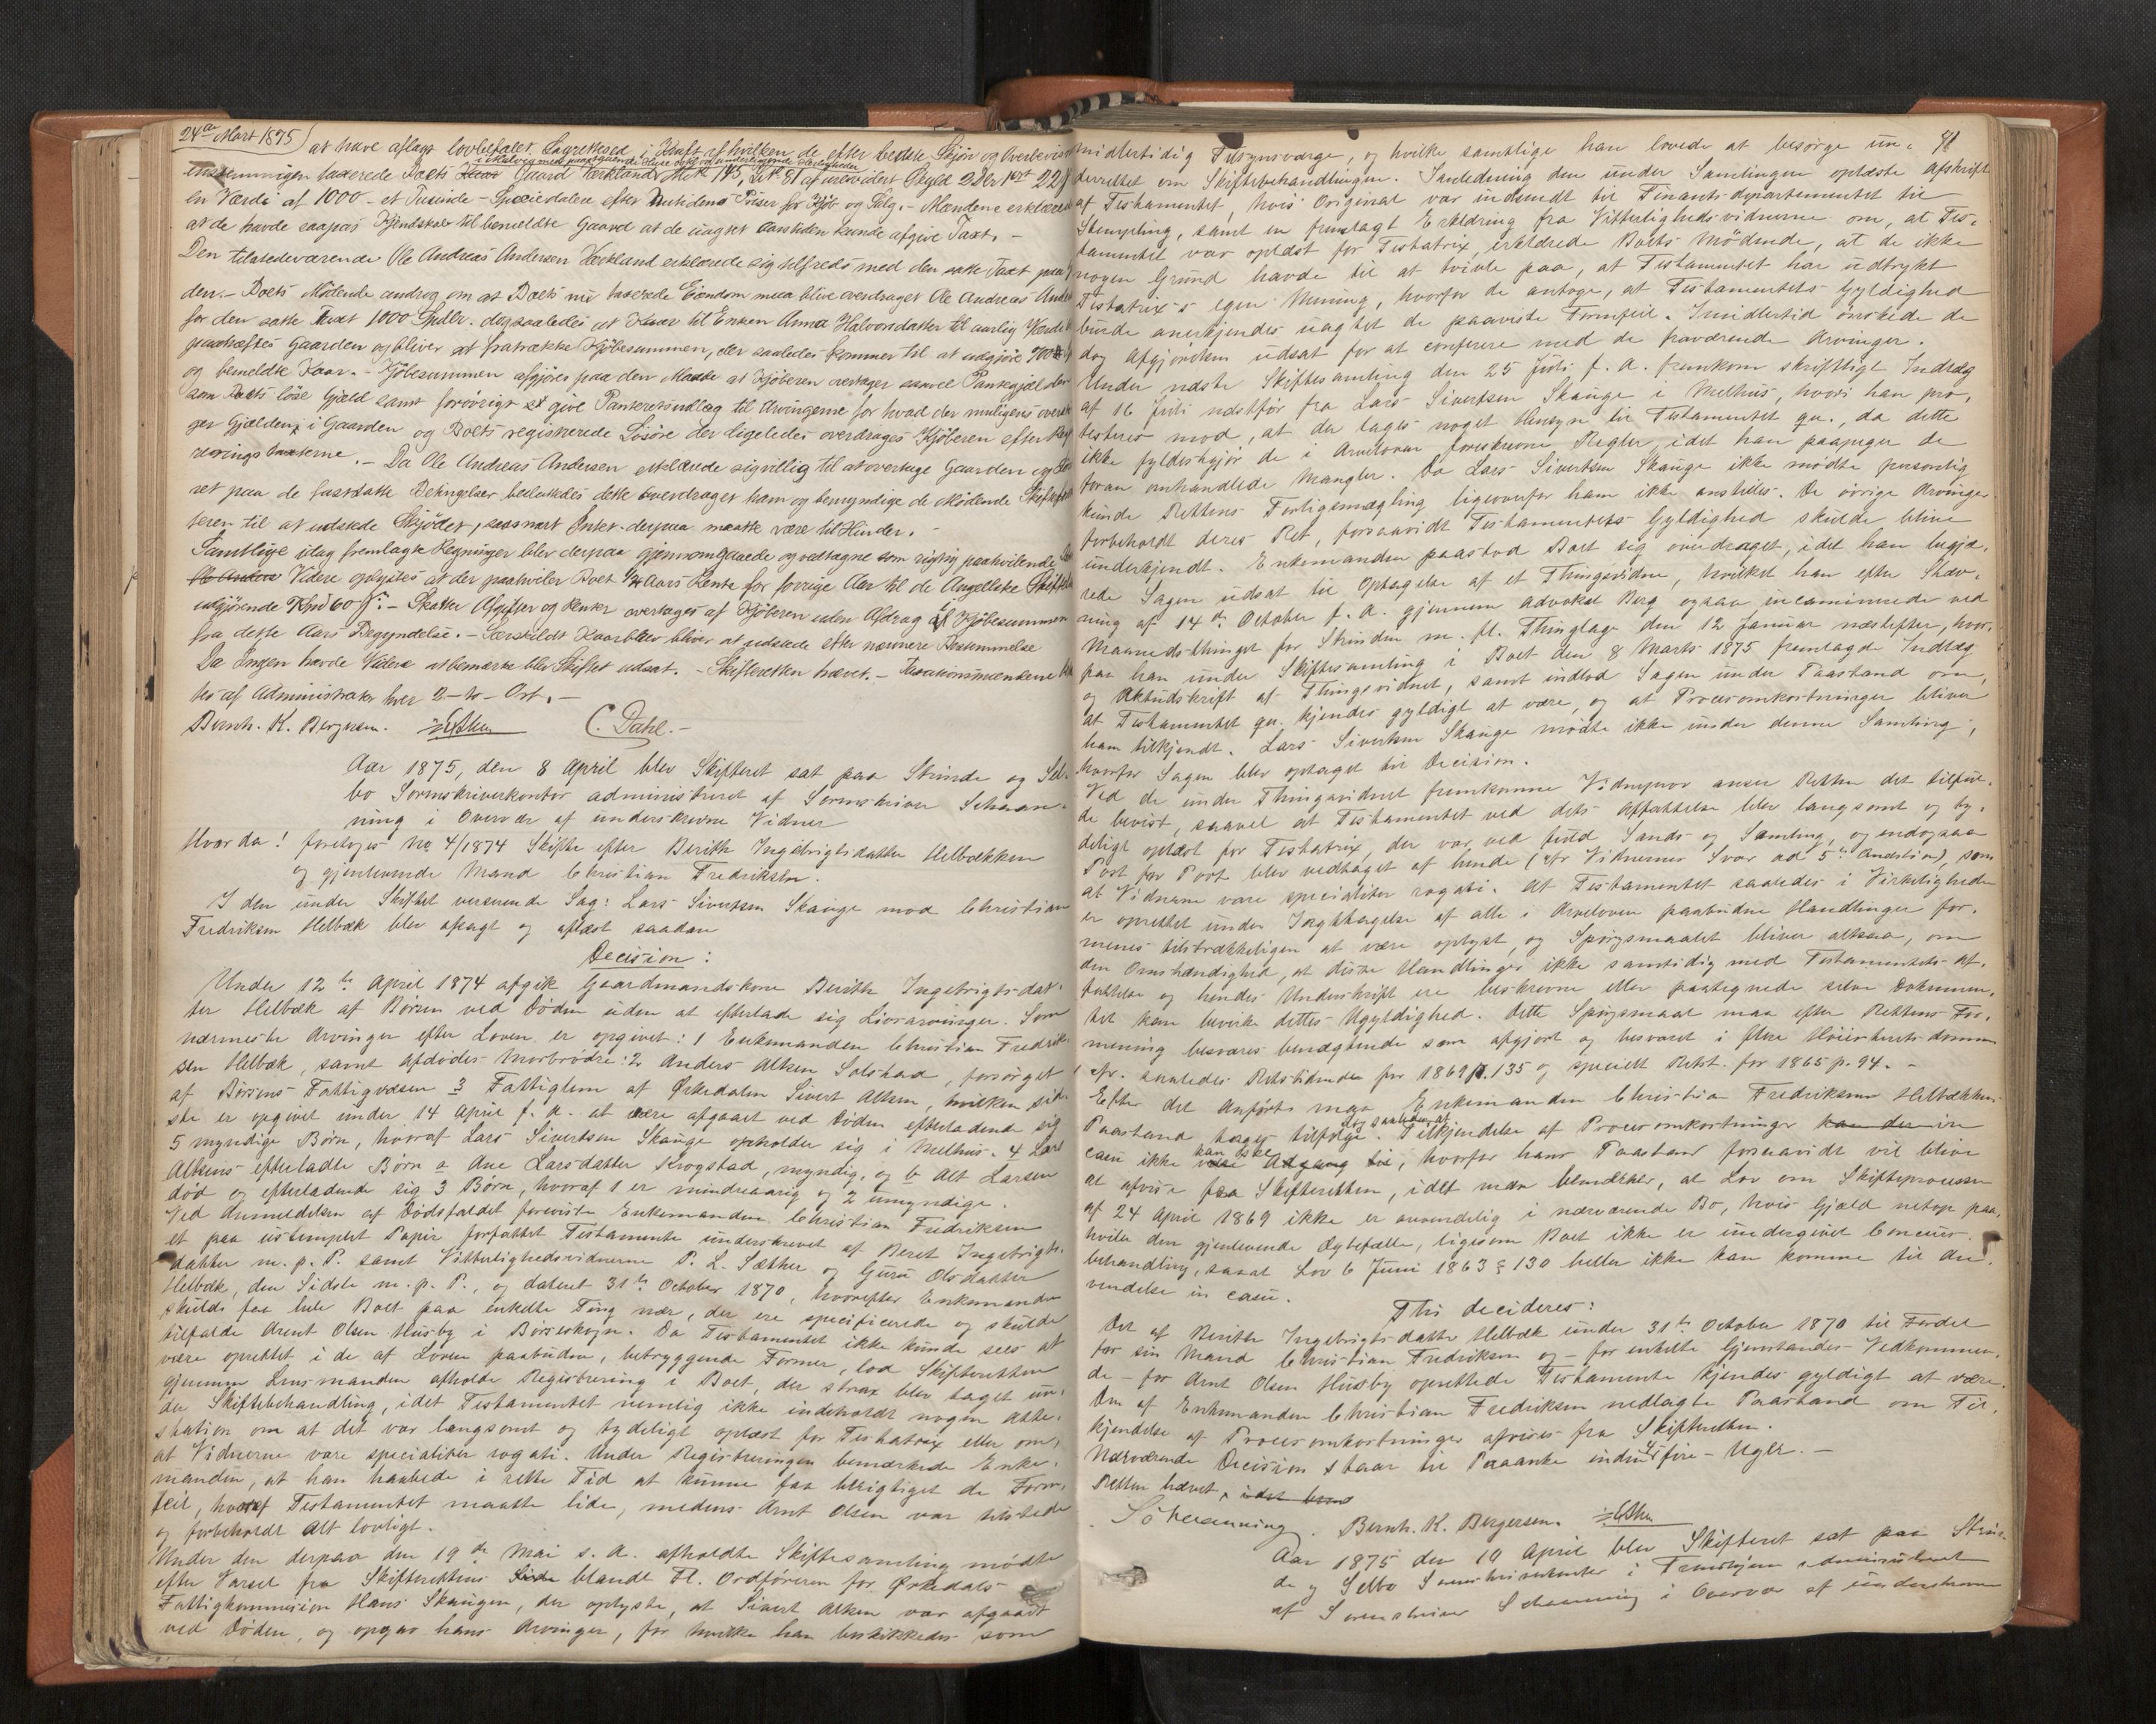 24de Mart 1875) at have aflagt lovbefalet Lagrettesed, i Kraft af hvilken de efter bedste Skjøn og Overbeviis
taxerede Boets Gaard Herkland Mtk 145, Lnk 81 af urevideret Skyld 2 Dlr 1 ort 22 s
en Værdi af 1000 - et Tusinde - Speciedalere efter Nutidens Priser for Kjøb og Salg. - Mændene erklærede
at de havde saapas Kjendskab til bemeldte Gaard at de uagtet Aarstiden kunde afgive Taxt. -
Den tilstedeværende Ole Andreas Andersen Herkland erklærede sig tilfreds med den satte Taxt paa
den. - Boets Mødende androg om at Boets nu taxerede Eiendom maa blive overdraget Ole Andreas Ande
for den satte Taxt 1000 Spdlr. dog saaledes at Kaar til Enken Anna Halvorsdatter til aarlig Værdi
paahæftes Gaarden og bliver at fratrække Kjøbesummen, der saaledes kommer til at udgjøre 700
og bemeldte Kaar. - Kjøbesummen afgjøres paa den Maade at Kjøberen overtager saavel Pantegjælden
som Boets løse Gjæld samt forøvrigt at give Panteretsudlæg til Arvingerne for hvad der muligens oversti
ger Gjælden, i Gaarden og Boets registrerede Løsøre der ligeledes overdrages Kjøberen efter Regist
reringstaxterne. - Da Ole Andreas Andersen erklærede sig villig til at overtage Gaarden og Løsø
ret paa de fastsatte Betingelser besluttedes dette overdraget ham og bemyndige de Mødende Skifteret
teren til at udstede Skjødet, saasnart Intet derpaa maatte være til Hinder. -
Samtlige idag fremlagte Regninger blev derpaa gjennemgaaede og vedtagne som rigtig paahvilende
Videre oplystes at der paahviler Boet 1/2 Aars Rente for forrige Aar til de Angellske Stiftelser
udgjørende 60 s. - Skatter Afgifter og Renter overtages af Kjøberen uden Afdrag af Kjøbesummen
fra dette Aars Begyndelse. - Særskildt Kaarbrev bliver at udstede efter nærmere Bestemmelse
Da Ingen havde Videre at bemærke blev Skiftet udsat. - Skifteretten hævet. - Taxationsmændene
tes af Administrator hver 2 - to - Ort. -
Bernh. K. Bergersen. C. Dahl. -
Aar 1875, den 8 April blev Skifteret sat paa Strinde og Sel-
bo Sorenskriverkontor administreret af Sorenskriver Schaan-
ning i Overvær af underskrevne Vidner
Hvorda! foretoges No 4/1874 Skifte efter Berith Ingebrigtsdatter Helbækken
og gjenlevende Mand Christian Fredriksen.
I den under Skiftet verserende Sag: Lars Sivertsen Skauge mod Christian
Fredriksen Helbæk blev afsagt og oplæst saadan
Decision:
Under 12te April 1874 afgik Gaardmandskone Berith Ingebrigtsdat-
ter Helbæk af Børsen ved Døden uden at efterlade sig Livsarvinger. Som
nærmeste Arvinger efter Loven er opgivet: 1 Enkemanden Christian Fredrik-
sen Helbæk, samt Afdødes Morbrødre: 2 Anders Alksen Solstad, forsørget
af Børsens Fattigvæsen 3 Fattiglem af Ørkedalen Sivert Alksen, hvilken sid-
ste er opgivet under 14 April f. A. at være afgaaet ved Døden efterladende sig
5 myndige Børn, hvoraf Lars Sivertsen Skauge opholder sig i Melhus. 4 Lars
Alksens efterladte Børn a Ane Larsdatter Krogstad, myndig, og b Alt Larsen
død og efterladende sig 3 Børn, hvoraf 1 er mindreaarig og 2 umyndige.
Ved Anmeldelsen af Dødsfaldet foreviste Enkemanden Christian Fredriksen
et paa ustemplet Papir forfattet Testamente underskrevet af Beret Ingebrigts-
datter m. p. P. samt Vitterlighedsvidnerne P. L. Sæther og Guru Olsdatter
Helbæk, den Sidste m. p. P., og dateret 31te October 1870, hvorefter Enkemanden
skulde faa hele Boet paa enkelte Ting nær, der ere specificerede og skulde
tilfalde Arent Olsen Husby i Børseskogn. Da Testamentet ikke kunde sees at
være oprettet i de af Loven paabudne, betryggende Former, lod Skifteretten
gjennem Lensmanden afholde Registrering i Boet, der strax blev taget un-
der Skiftebehandling, idet Testamentet nemlig ikke indeholdt nogen Atte-
station om at det var langsomt og tydeligt oplæst for Testatrix eller om,
at Vidnerne vare specialiter rogati. Under Registreringen bemærkede Enke-
manden, at han haabede i rette Tid at kunne faa berigtiget de Form-
feil, hvoraf Testamentet maatte lide, medens Arnt Olsen var tilstede
og forbeholdt Alt lovligt.
Under den derpaa den 19de Mai s. A. afholdte Skiftesamling mødte
efter Varsel fra Skifterettens Side blandt Fl. Ordføreren for Ørkedals
Fattigkommission Hans Skaugen, der oplyste, at Sivert Alksen var afgaaet
ved Døden, og opgav hans Arvinger, for hvilke han beskikkedes som
81
midlertidig Tilsynsværge, og hvilke samtlige han lovede at besørge un-
derrettet om Skiftebehandlingen. I Anledning den under Samlingen oplæste Afskrift
af Testamentet, hvis Original var indsendt til Finantsdepartementet til
Stempling, samt en fremlagt Erklæring fra Vitterlighedsvidnerne om, at Tes-
tamentet var oplæst for Testatrix, erklærede Boets Mødende, at de ikke
nogen Grund havde til at tvivle paa, at Testamentet har udtrykt
Testatrix's egen Mening, hvorfor de antoge, at Testamentets Gyldighed
burde anerkjendes uagtet de paaviste Formfeil. Imidlertid ønskede de
dog Afgjørelsen udsat for at conferere med de fraværende Arvinger.
Under næste Skiftesamling den 25 Juli f. A. fremkom skriftligt Indlæg
af 16 Juli næstfør fra Lars Sivertsen Skauge i Melhus, hvori han pro-
testerer mod, at der tages noget Hensyn til Testamentet qu., da dette
ikke fyldestgjør de i Arveloven foreskrevne Regler, idet han paapeger de
foran omhandlede Mangler. Da Lars Sivertsen Skauge ikke mødte personlig
kunde Rettens Forligsmægling ligeoverfor ham ikke anstilles. De øvrige Arvinger
forbeholdt deres Ret, forsaavidt Testamentets Gyldighed skulde blive
underkjendt. Enkemanden paastod Boet sig overdraget, idet han begjæ-
rede Sagen udsat til Optagelse af et Thingsvidne, hvilket han efter Stæv-
ning af 14de October f. A. gjennem Advokat Berg ogsaa incaminerede ved
Maanedsthinget for Strinden m. fl. Thinglage den 12 Januar næstefter, hvor-
paa han under Skiftesamling i Boet den 8 Marts 1875 fremlagde Indlæg
og Aktudskrift af Thingsvidnet, samt indlod Sagen under Paastand om,
at Testamentet qu. kjendes gyldigt at være, og at Procesomkostninger bliver
ham tilkjendt. Lars Sivertsen Skauge mødte ikke under denne Samling,
hvorfor Sagen blev optaget til Decision.
Ved de under Thingsvidnet fremkomne Vidneprov anser Retten det tilful-
de bevist, saavel at Testamentet ved dets Affattelse blev langsomt og ty-
deligt oplæst for Testatrix, der var ved fuld Sands og Samling, og endogsaa
Post for Post blev vedtaget af hende (cfr Vidnernes Svar ad 5te Qvæstion), som
at Vidnerne vare specialiter rogati. At Testamentet saaledes i Virkeligheden
er oprettet under Iagttagelse af alle i Arveloven paabudne Handlinger for-
menes tilstrækkeligen at være oplyst, og Spørgsmaalet bliver altsaa, om
den Omstændighed, at disse Handlinger ikke samtidig med Testamentets Af-
fattelse og hendes Underskrift ere beskrevne eller paategnede selve Dokumen-
tet kan bevirke dettes Ugyldighed. Dette Spørgsmaal maa efter Rettens For-
mening besvares benægtende som afgjort og besvaret i flere Høiesteretsdomme
cfr. saaledes Retstidende for 1869 p. 135 og specielt Retst. for 1865 p. 94. -
Efter det Anførte maa Enkemanden Christian Fredriksens Helbækkens
Paastand tages tilfølge. Tilkjendelse af Procesomkostninger kan der in
casu ikke kan ske, hvorfor hans Paastand forsaavidt vil blive
at afvise fra Skifteretten, idet man bemærker, at Lov om Skifteprocessen
af 24 April 1869 ikke er anvendelig i nærværende Bo, hvis Gjæld netop paa-
hviler den gjenlevende Ægtefælle, ligesom Boet ikke er undergivet Concurs-
behandling, saaat Lov 6 Juni 1863 § 130 heller ikke kan komme til An-
vendelse in casu.
Thi decideres:
Det af Berith Ingebrigtsdatter Helbæk under 31te October 1870 til Fordel
for sin Mand Christian Fredriksen og - for enkelte Gjenstandes Vedkommen-
de - for Arnt Olsen Husby oprettede Testamente kjendes gyldigt at være.
Den af Enkemanden Christian Fredriksen nedlagte Paastand om Til-
kjendelse af Procesomkostninger afvises fra Skifteretten.
Nærværende Decision staar til Paaanke inden 4 - fire - Uger. -
Retten hævet,
Schaanning. Bernh. K. Bergersen.
Aar 1875 den 10 April blev Skifteret sat paa Strin-
de og Selbo Sorenskriverkontor i Trondhjem administreret
af Sorenskriver Schaanning i Overvær af underskrevne